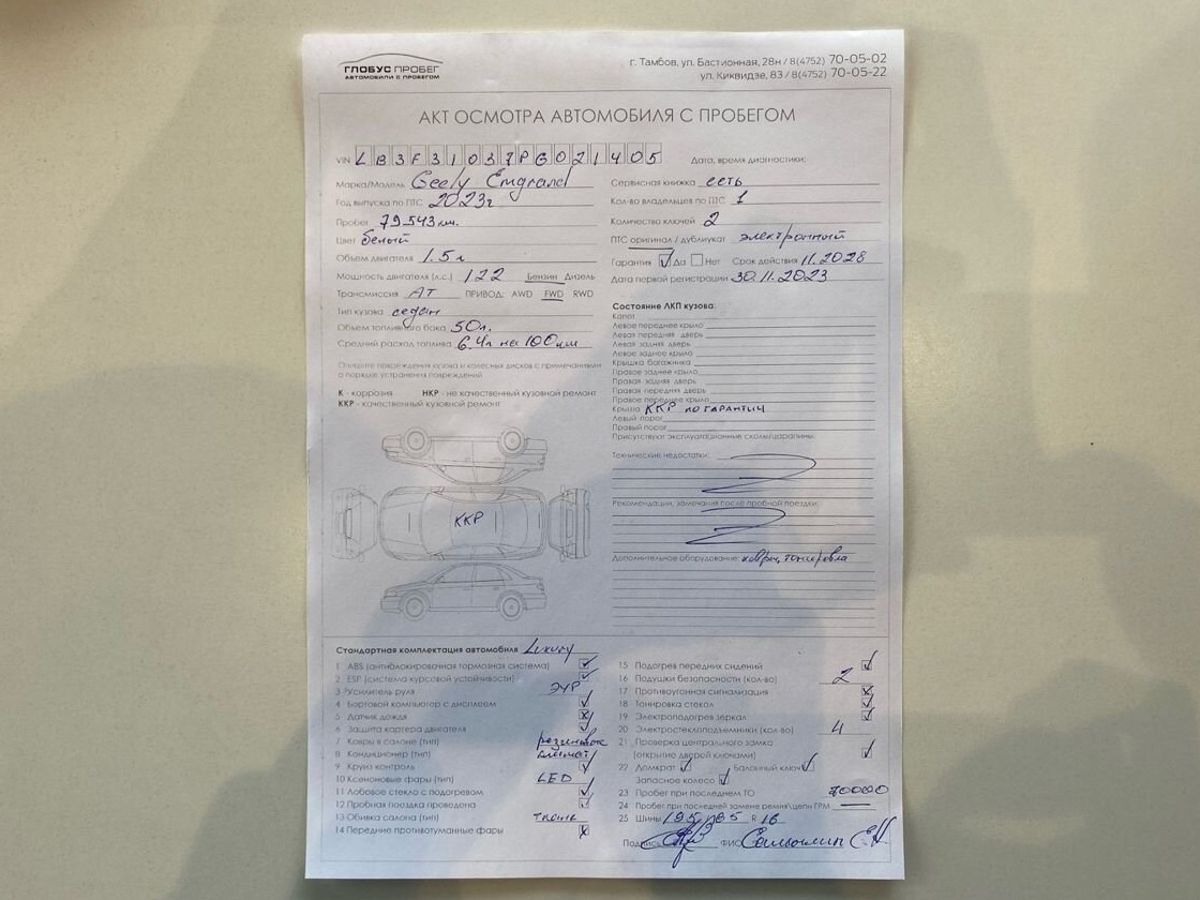 ГЛОБУС ПРОБЕГ
АВТОМОБИЛИ С ПРОБЕГОМ
г. Тамбов, ул. Бастионная, 28н / 8(4752) 70-05-02
ул. Киквидзе, 83 / 8(4752) 70-05-22
АКТ ОСМОТРА АВТОМОБИЛЯ С ПРОБЕГОМ
VIN LB3F31037PG021405
Марка/Модель Geely Emgrand
Год выпуска по ПТС 2023г
Пробег 79543км.
Цвет белый
Объем двигателя 1.5л
Мощность двигателя (л.с.) 122 Бензин Дизель
Трансмиссия АТ ПРИВОД: AWD FWD RWD
Тип кузова седан
Объем топливного бака 50л.
Средний расход топлива 6.4л на 100км
Опишите повреждения кузова и колесных дисков с примечаниями
о порядке устранения повреждений
К - коррозия НКР - не качественный кузовной ремонт
ККР - качественный кузовной ремонт
ККР
Дата, время диагностики:
Сервисная книжка есть
Кол-во владельцев по ПТС 1
Количество ключей 2
ПТС оригинал / дубликат электронный
Гарантия Да Нет Срок действия 11.2028
Дата первой регистрации 30.11.2023
Состояние ЛКП кузова:
Капот
Левое переднее крыло
Левая передняя дверь
Левая задняя дверь
Левое заднее крыло
Крышка багажника
Правое заднее крыло
Правая задняя дверь
Правая передняя дверь
Правое переднее крыло
Крыша ККР по гарантии
Левый порог
Правый порог
Присутствуют эксплуатационные сколы/царапины.
Технические недостатки:
Рекомендации, замечания после пробной поездки:
Дополнительное оборудование: ковры, тонировка
Стандартная комплектация автомобиля Luxury
1 ABS (антиблокировочная тормозная система)
2 ESP (система курсовой устойчивости)
3 Усилитель руля ЭУР
4 Бортовой компьютер с дисплеем
5 Датчик дождя
6 Защита картера двигателя
7 Ковры в салоне (тип)
8 Кондиционер (тип) климат
9 Круиз контроль
10 Ксеноновые фары (тип) LED
11 Лобовое стекло с подогревом
12 Пробная поездка проведена
13 Обивка салона (тип) ткань
14 Передние противотуманные фары
15 Подогрев передних сидений
16 Подушки безопасности (кол-во) 2
17 Противоугонная сигнализация
18 Тонировка стекол
19 Электроподогрев зеркал
20 Электростеклоподъемники (кол-во) 4
21 Проверка центрального замка
(открытие дверей ключами)
22 Домкрат Балонный ключ
Запасное колесо
23 Пробег при последнем ТО 70000
24 Пробег при последней замене ремня/цепи ГРМ
25 Шины 195/65 R 16
Подпись ФИО